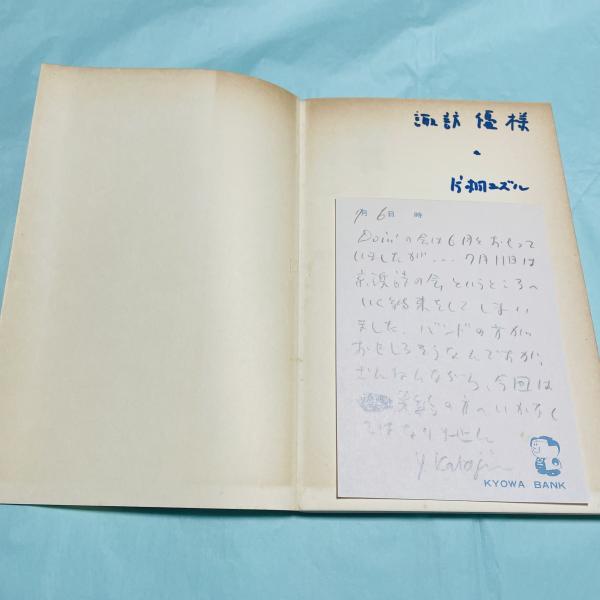 諏訪 優 様
片桐ユズル
7月 6日 時
Doin'の会は6月とおもって
いましたが... 7月11日は
京浜詩の会、というところへ
いく約束をしてしまい
ました. バンドの方が
おもしろそうなんですが、
ざんねんながら、今回は
の方へいかなく
てはなりません
Y. Katagiri
KYOWA BANK